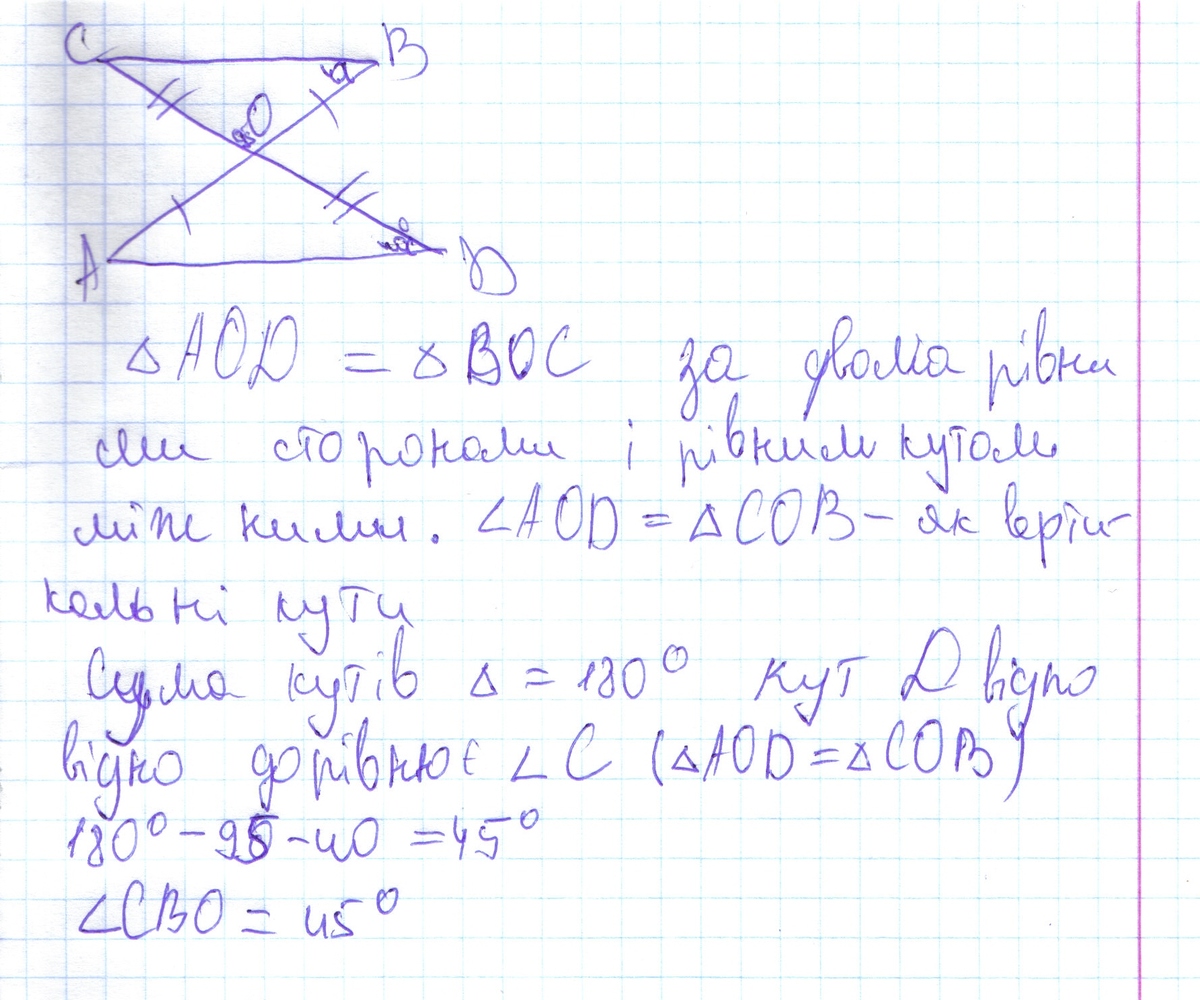 C B
O
95
A D
40°
△AOD = △BOC за двома рівни
ми сторонами і рівним кутом
між ними. ∠AOD = △COB – як верти-
кальні кути
Сума кутів △ = 180° кут D відпо
відно дорівнює ∠C (△AOD = △COB)
180° – 95 – 40 = 45°
∠CBO = 45°